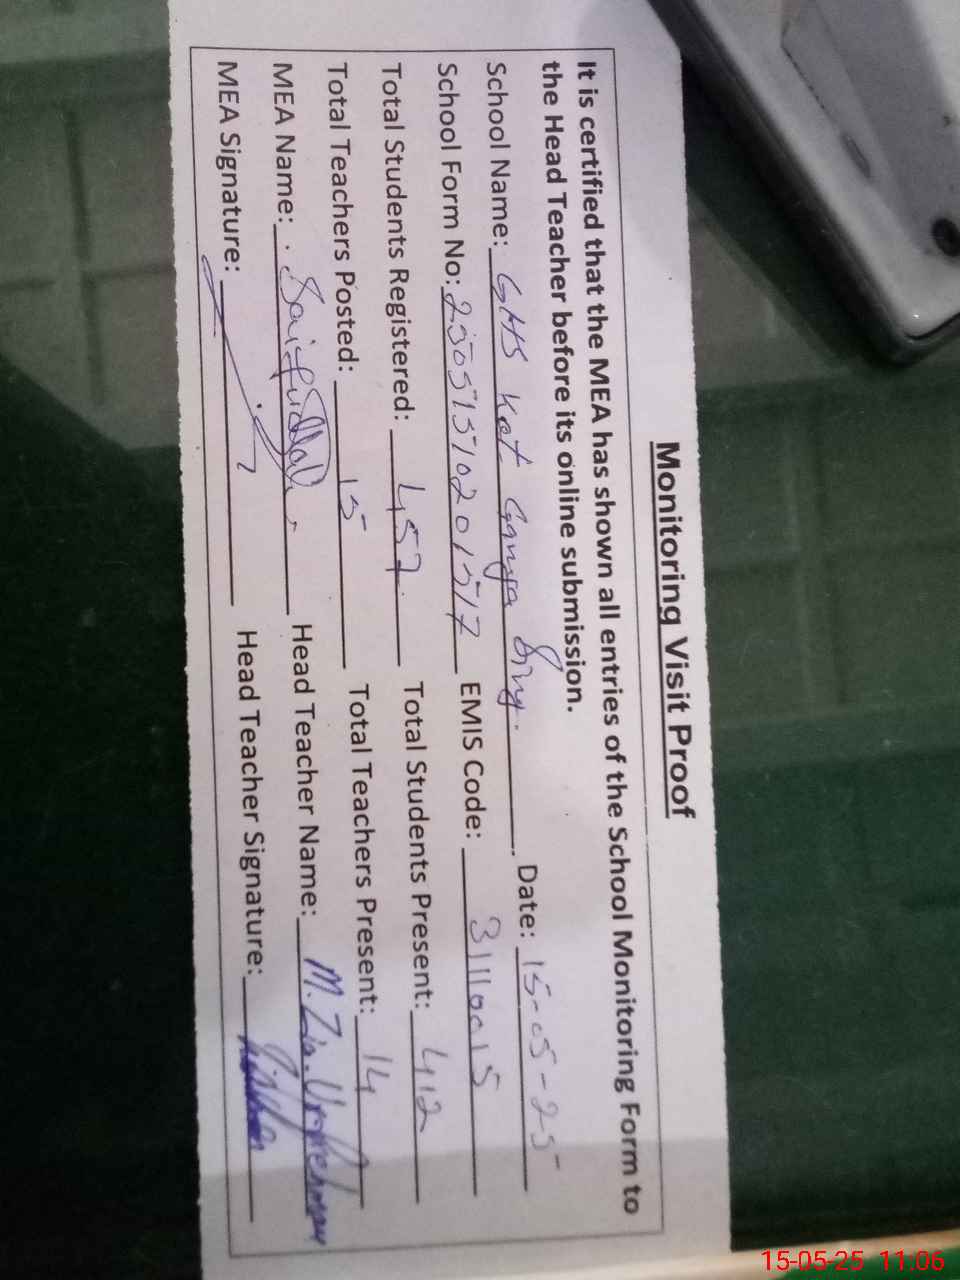 Monitoring Visit Proof
It is certified that the MEA has shown all entries of the School Monitoring Form to
the Head Teacher before its online submission.
School Name: GHS Kot Ganga Sing. Date: 15-05-25
School Form No: EMIS Code: 31110015
Total Students Registered: 457 Total Students Present: 412
Total Teachers Posted: 15 Total Teachers Present: 14
MEA Name: Saifullah Head Teacher Name: M. Zia.Urrehman
MEA Signature: Head Teacher Signature:
15-05-25 11:06